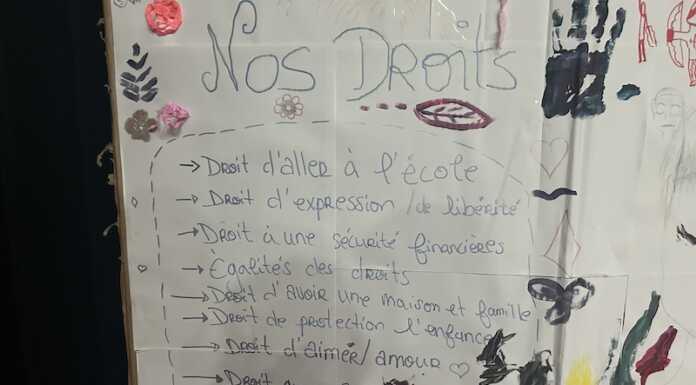 Nos Droits
→ Droit d'aller à l'école
→ Droit d'expression / de libérité
→ Droit à une sécurité financières
→ Égalités des droits
→ Droit d'avoir une maison et famille
→ Droit de protection l'enfance
→ Droit d'aimer / amour ♡
→ Droit